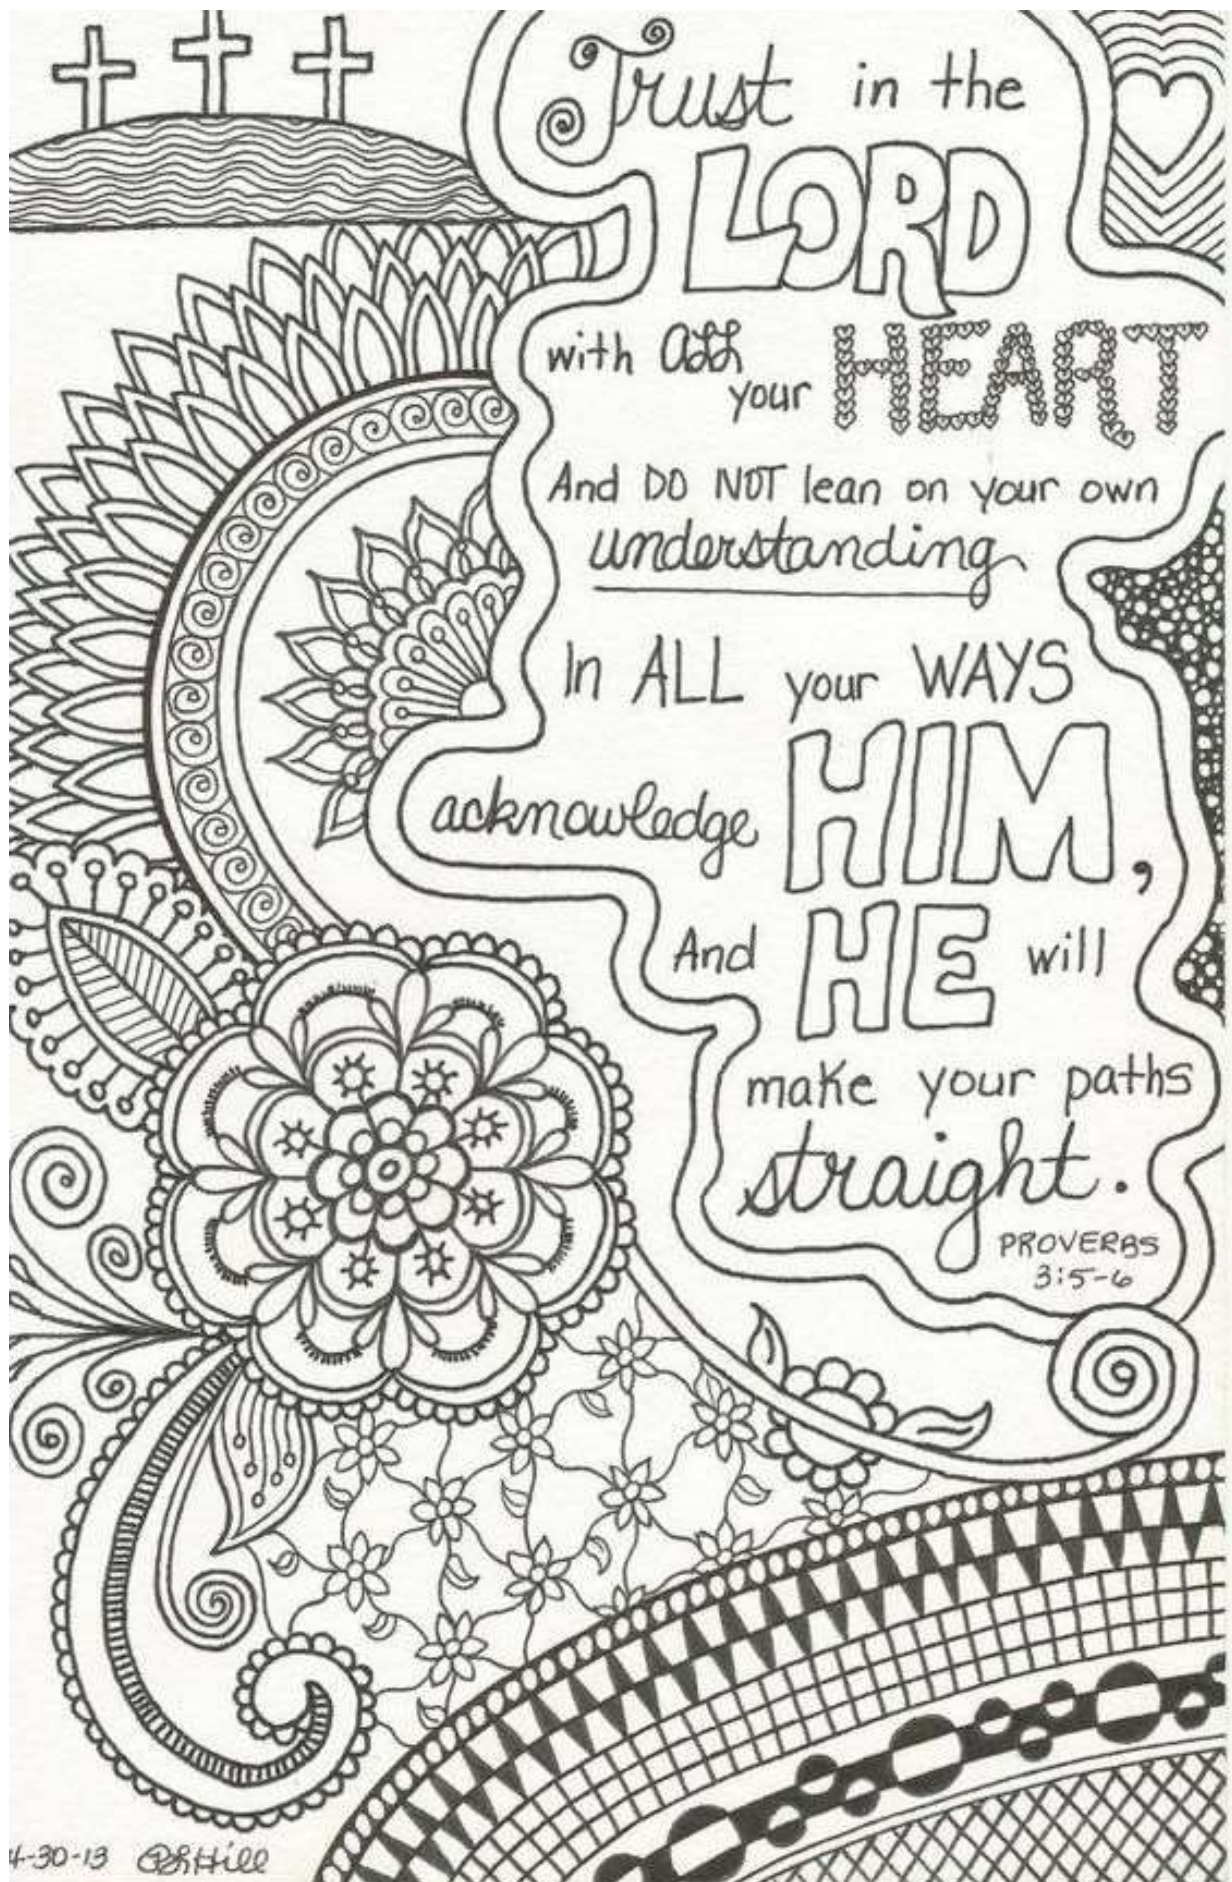 Trust in the
LORD
with all your HEART
And DO NOT lean on your own
understanding
In ALL your WAYS
acknowledge HIM,
And HE will
make your paths
straight.
PROVERBS
3:5-6
4-30-13